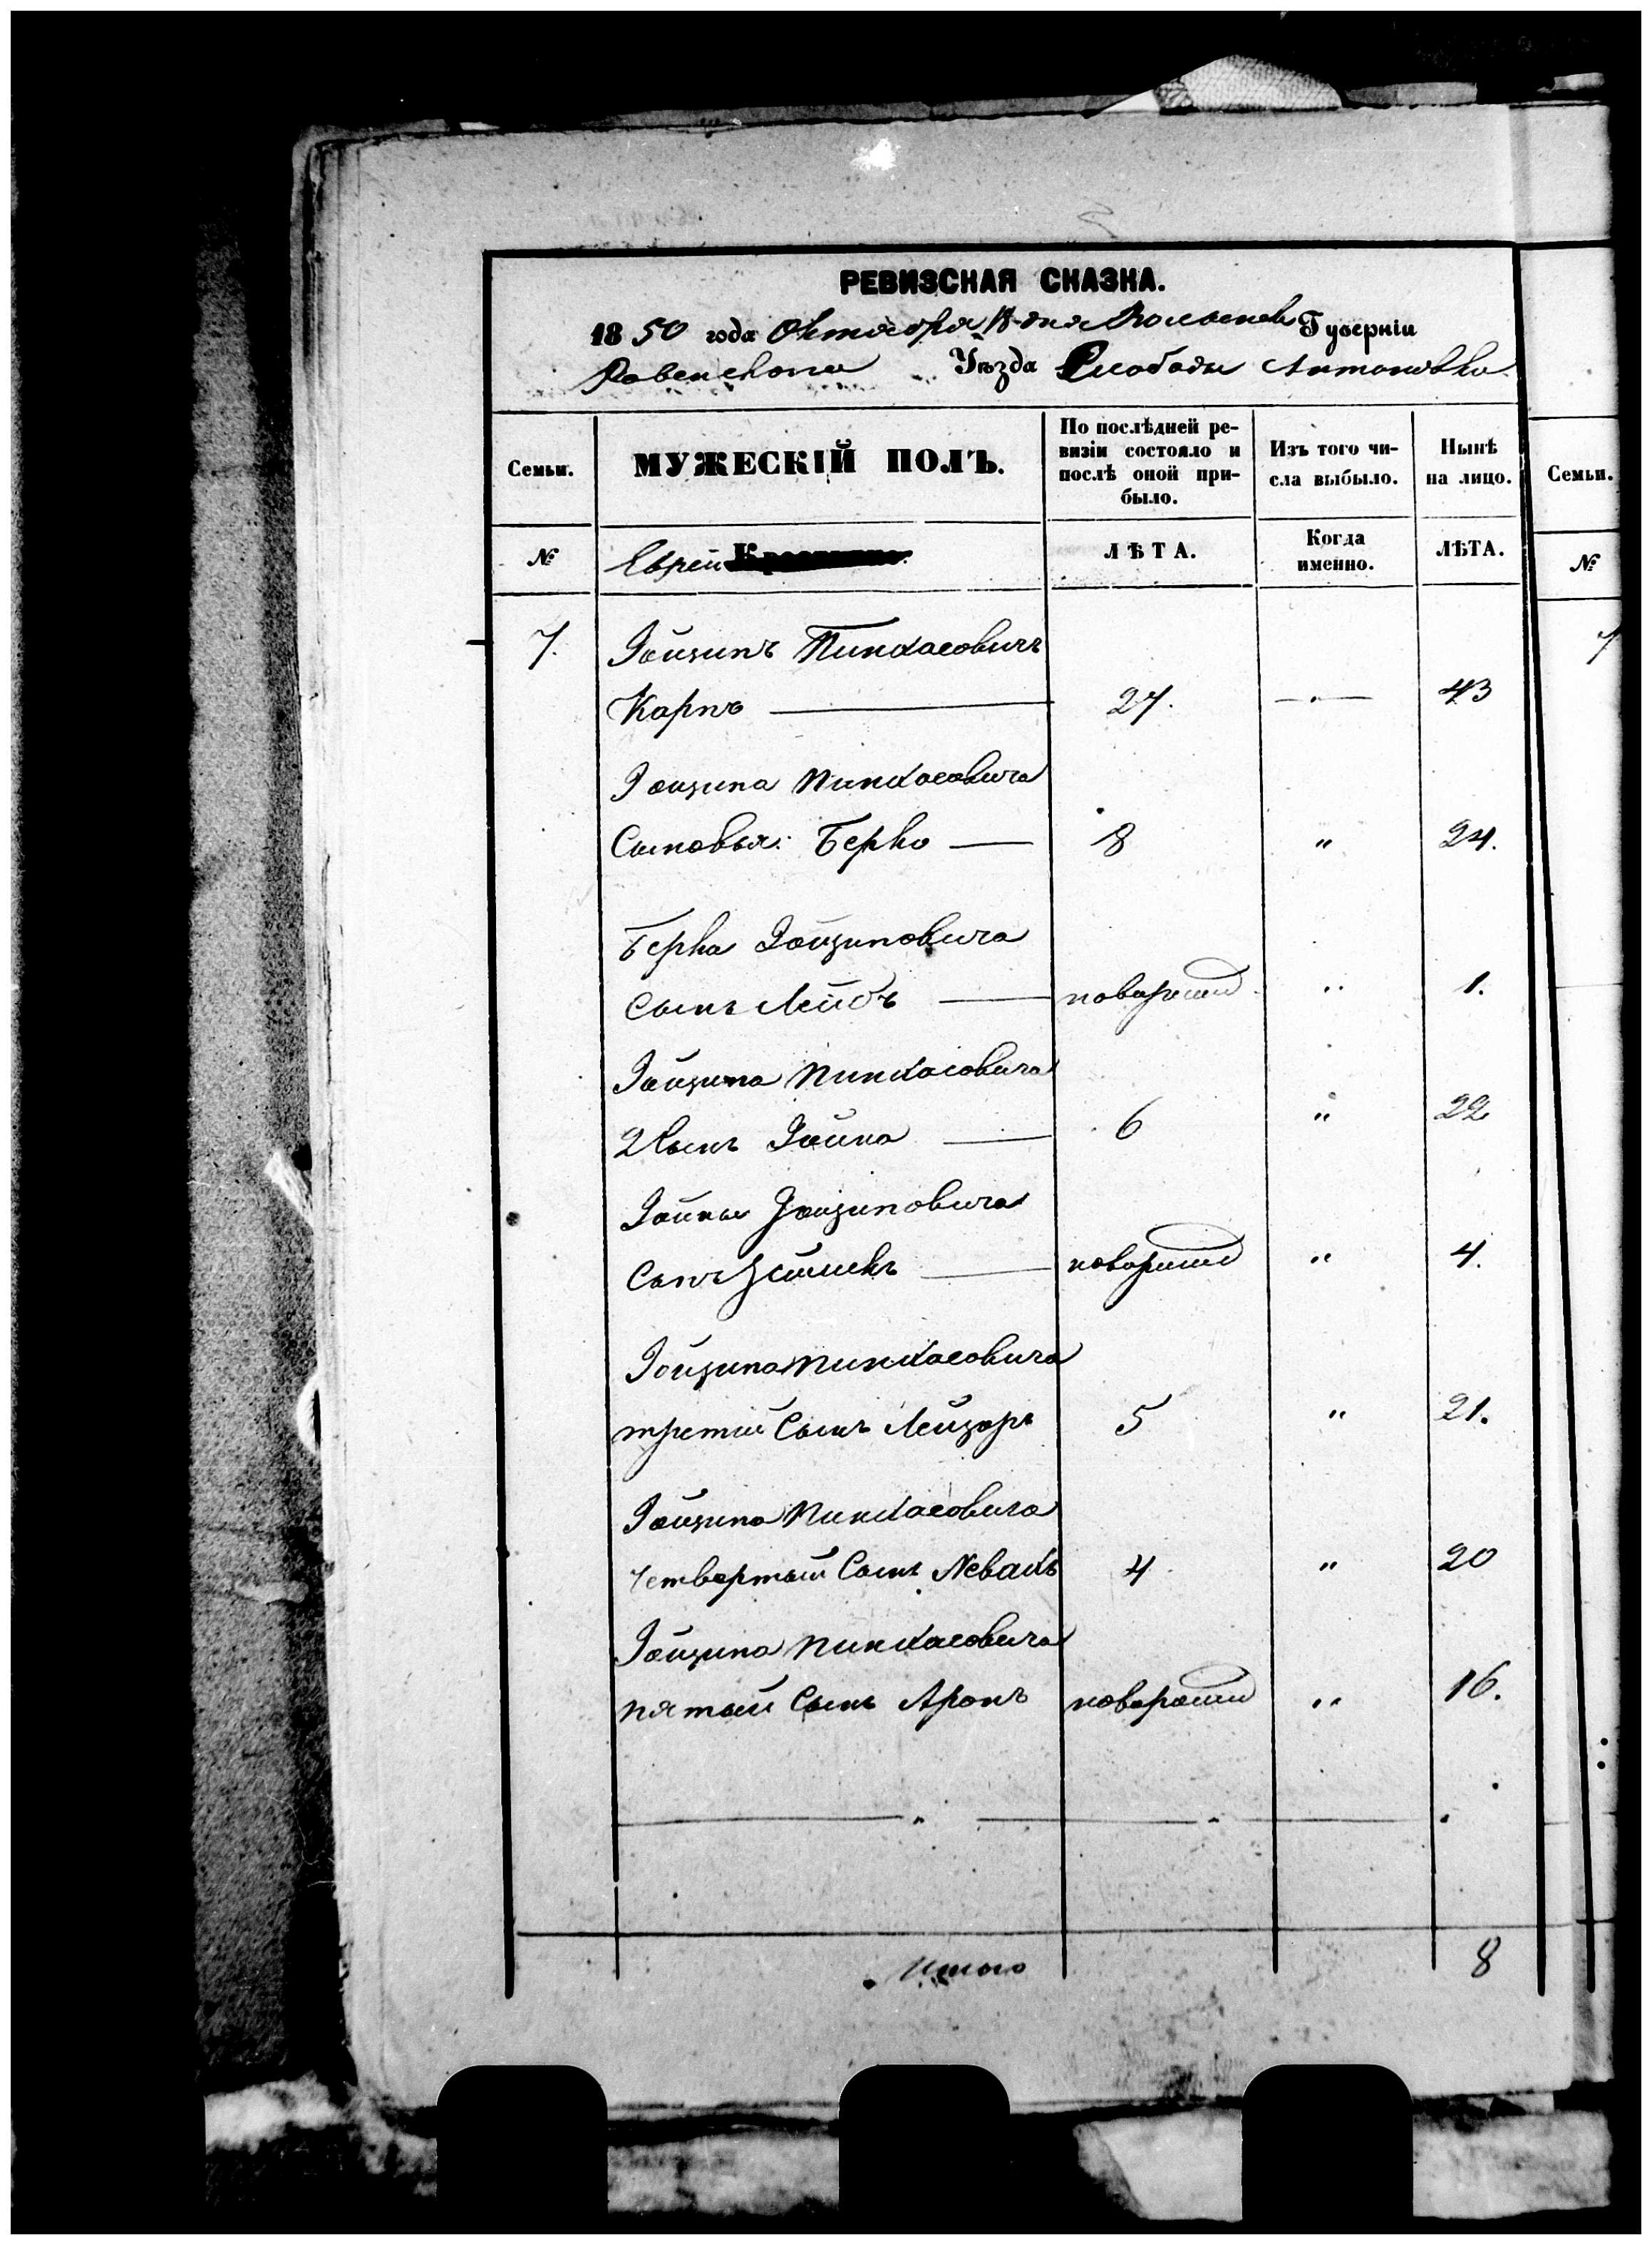 РЕВИЗСКАЯ СКАЗКА.
1850 года Октября дня Волынской Губерніи
Ровенскаго Уѣзда Слободы Антоновка
Семьи. МУЖЕСКІЙ ПОЛЪ. По послѣдней ре-
визіи состояло и
послѣ оной при-
было. Изъ того чи-
сла выбыло. Нынѣ
на лицо. Семьи.
№ Еврей ЛѢТА. Когда
именно. ЛѢТА. №
7. Іойзипъ Пинхасовичъ 7
Карпъ 27. 43
Іойзипа Пинхасовича
Сыновья: Берко 8 " 24.
Берка Іойзиповича
Сынъ Лейбъ новорожд " 1.
Іойзипа Пинхасовича
2 Сынъ 6 " 22
Іойзиповича
Сынъ новорожд " 4.
Іойзипа Пинхасовича
третій Сынъ Лейзоръ 5 " 21.
Іойзипа Пинхасовича
четвертый Сынъ 4 " 20
Іойзипа Пинхасовича
пятый Сынъ Аронъ новорожд " 16.
Итого 8